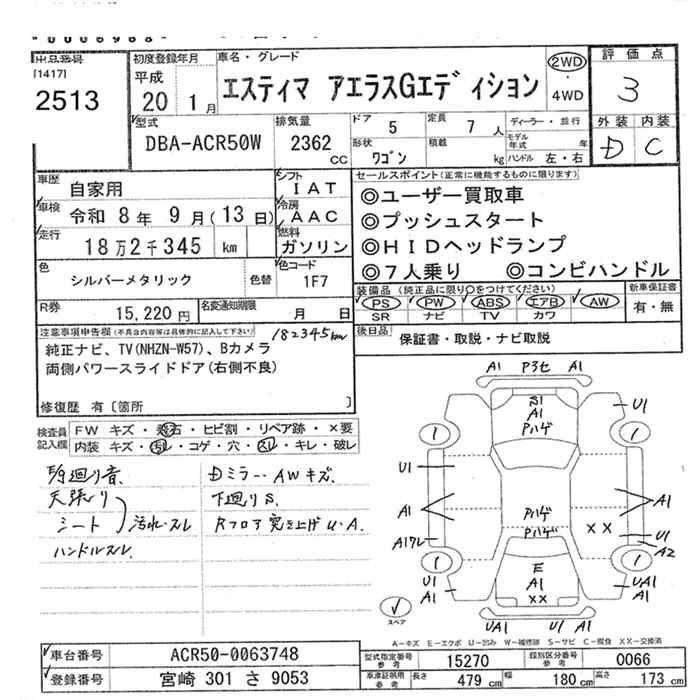 出品番号
[1417]
2513
初度登録年月
平成
20 1月
車名・グレード
エスティマ アエラスGエディション
2WD
・
4WD
評価点
3
外装 内装
D C
型式
DBA-ACR50W
排気量
2362 cc
ドア 5
定員 7 人
形状 ワゴン
積載 kg
ディーラー・並行
モデル年式 年
ハンドル 左・右
車歴 自家用
車検 令和 8年 9月(13日)
走行 18万2千345 km
シフト IAT
冷房 AAC
燃料 ガソリン
色 シルバーメタリック 色替
色コード 1F7
R券 15,220円
名変通知期限 月 日
セールスポイント(正常に機能するものに限ります)
◎ユーザー買取車
◎プッシュスタート
◎HIDヘッドランプ
◎7人乗り ◎コンビハンドル
装備品(純正品に限り○をつけてください)
PS PW ABS エアB AW
SR ナビ TV カワ
新車保証書
有・無
後日品 保証書・取説・ナビ取説
注意事項申告欄(不具合内容等は具体的に記入して下さい)
182345km
純正ナビ、TV(NHZN-W57)、Bカメラ
両側パワースライドドア(右側不良)
修復歴 有[箇所 ]
検査員記入欄
FW キズ・飛石・ヒビ割・リペア跡・×要
内装 キズ・汚れ・コゲ・穴・スレ・キレ・破レ
天張り
シート 汚れ・スレ
ハンドルスレ
Dミラー・AWキズ
下廻りS
Rフロア突き上げU・A
A1 P3セ A1
S1
A1
Pハゲ
U1
1 1
U1
A1
A1
Pハゲ
Pハゲ
××
A17レ
U1
A2
1 1
U1
A1
E
A1
××
UA1
A1
スペア
UA1 U1 A1
A-キズ E-エクボ U-凹み W-補修跡 S-サビ C-腐食 XX-交換済
車台番号 ACR50-0063748
登録番号 宮崎 301 さ 9053
型式指定番号 参考 15270
類別区分番号 参考 0066
車庫証明用 参考 長さ 479 cm 幅 180 cm 高さ 173 cm